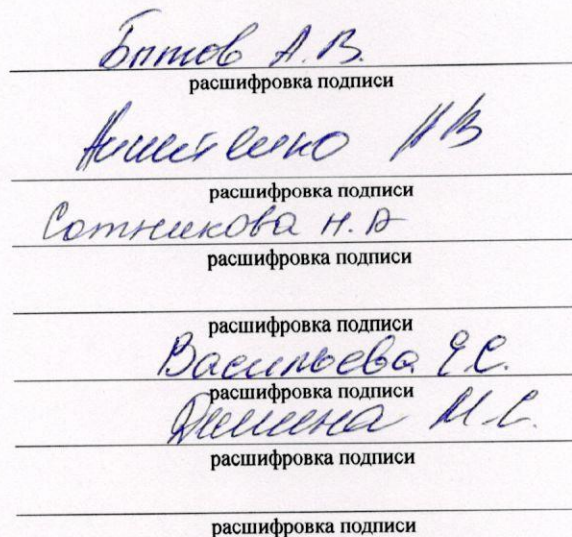 А.В.
расшифровка подписи
расшифровка подписи
Сотникова Н.А
расшифровка подписи
расшифровка подписи
Васильева Е.С.
расшифровка подписи
М.С.
расшифровка подписи
расшифровка подписи